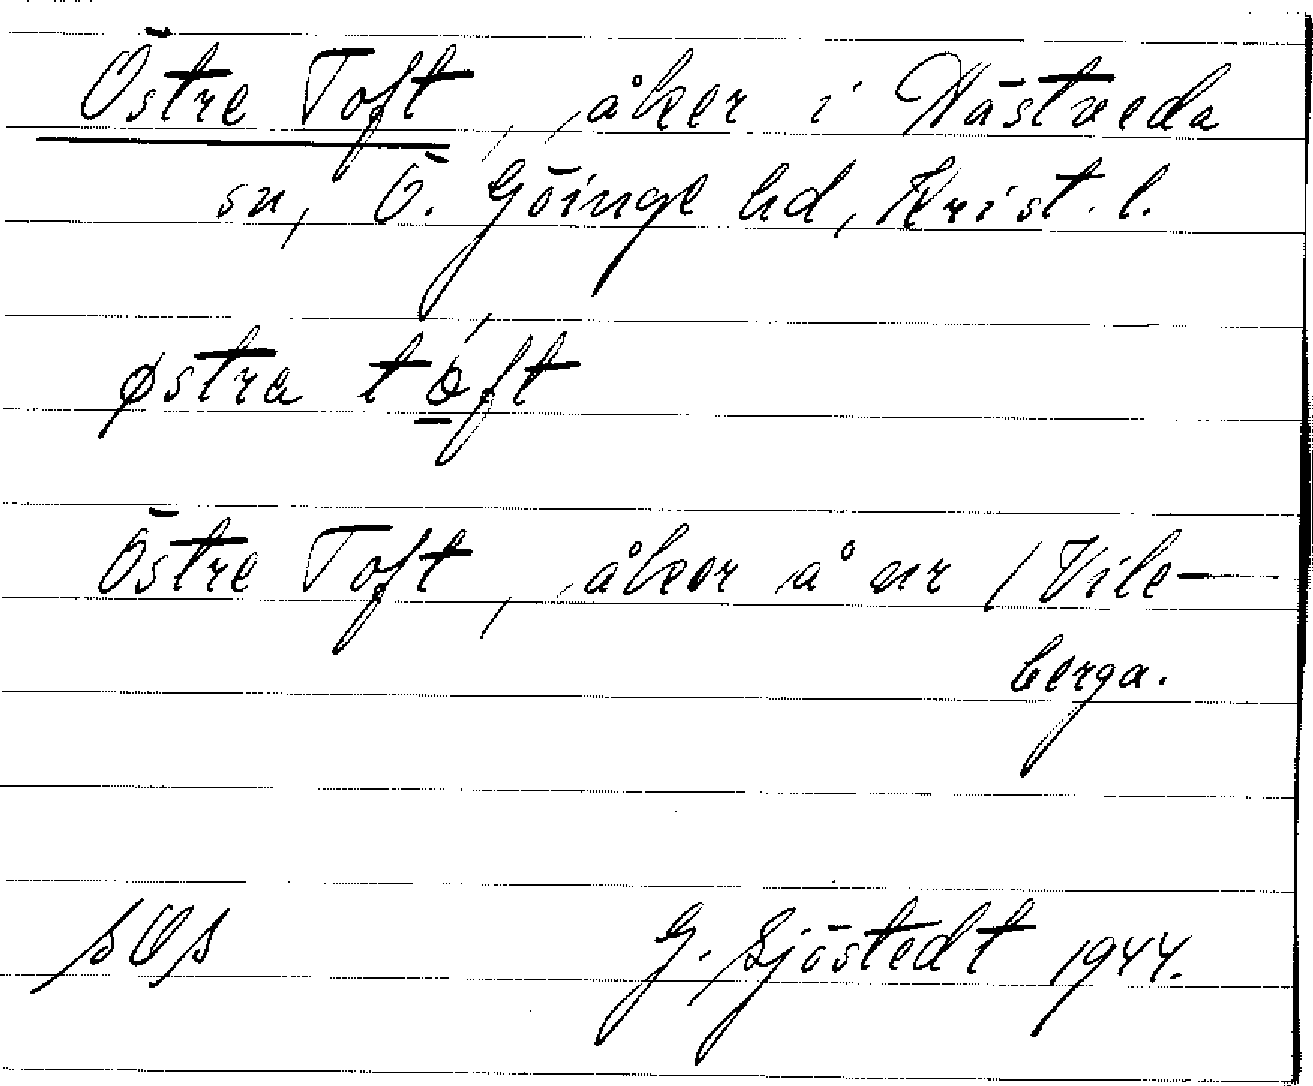 Östre Toft, åker i Hästveda
sn, Ö. Göinge hd, Krist. l.
østra tóft
Östre Toft, åker å nr 1 Vile-
berga.
G. Sjöstedt 1944.